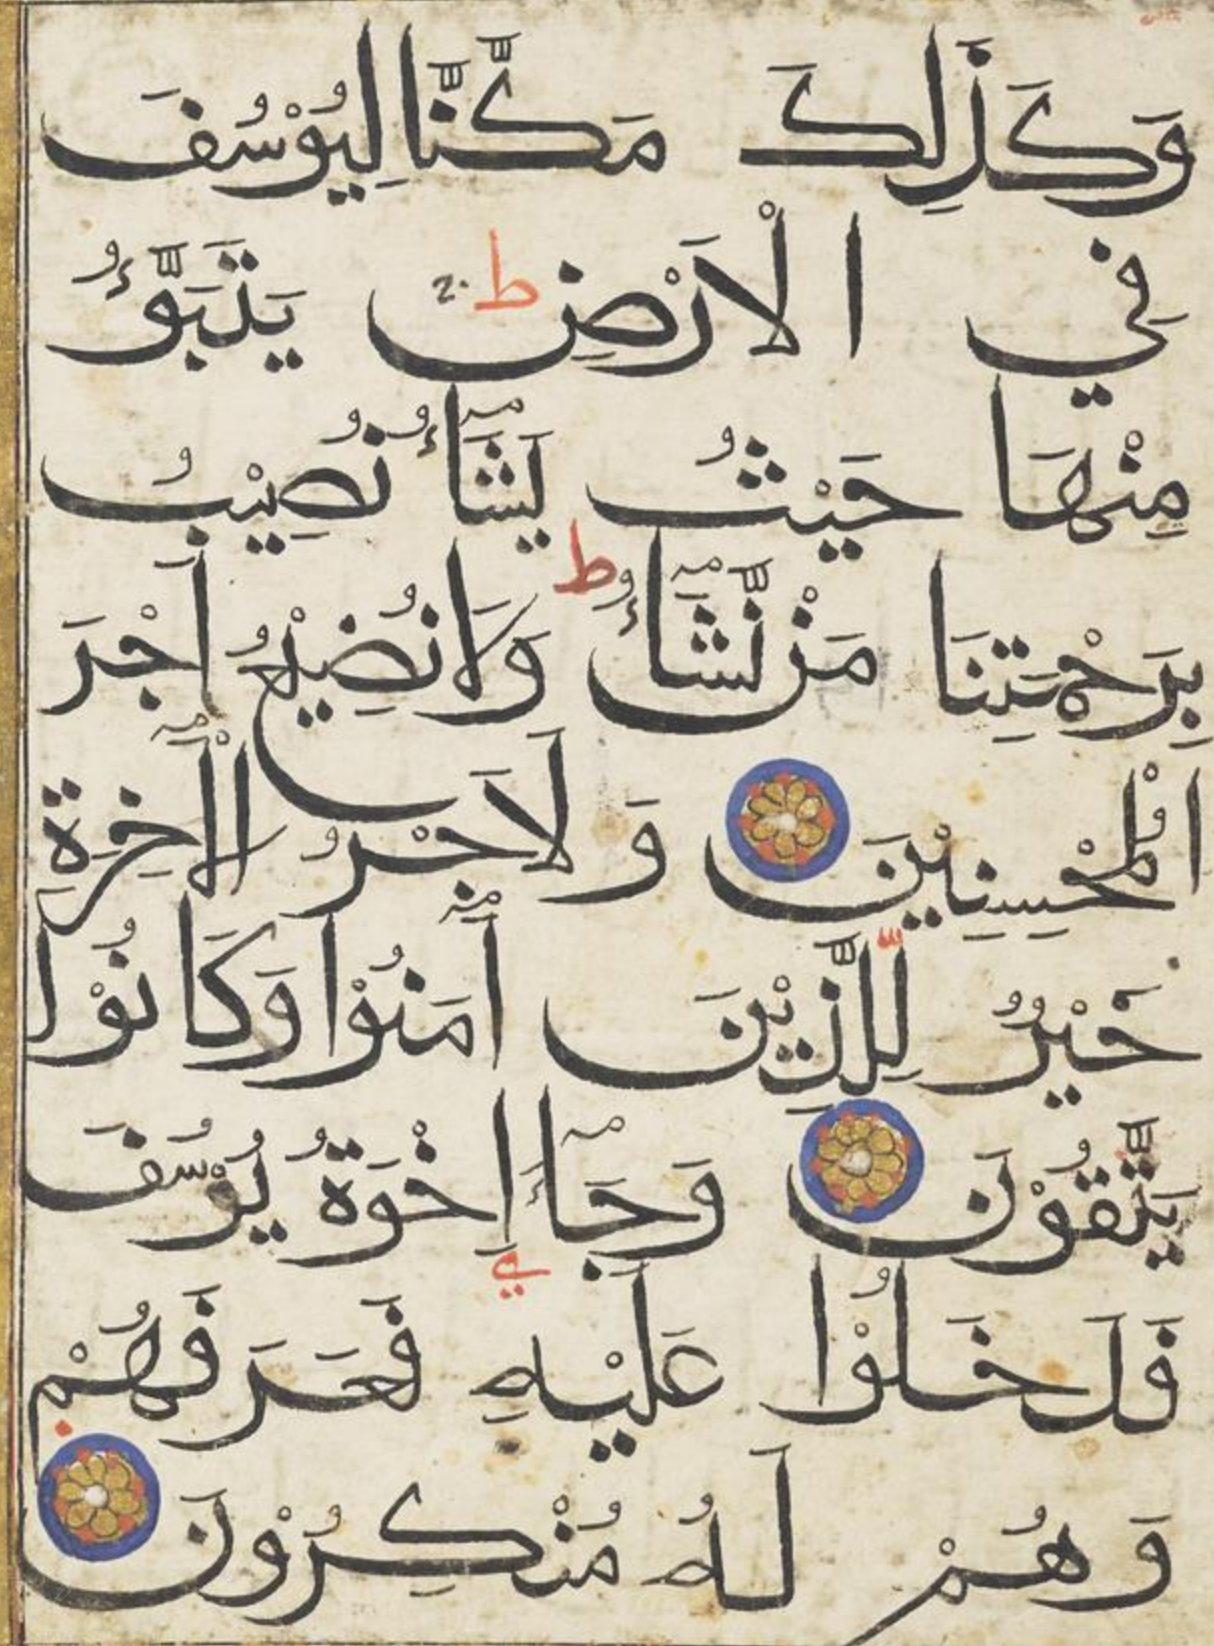 وَكَذَلِكَ مَكَّنَّا لِيُوْسُفَ
فِي الْاَرْضِ ط يَتَبَوَّءُ
مِنْهَا حَيْثُ يَشَآءُ نُصِيْبُ
بِرَحْمَتِنَا مَنْ نَّشَآءُ ط وَلَا نُضِيْعُ اَجْرَ
الْمُحْسِنِيْنَ وَلَاَجْرُ الْآخِرَةِ
خَيْرٌ لِلَّذِيْنَ آمَنُوْا وَكَانُوْا
يَتَّقُوْنَ وَجَآءَ اِخْوَةُ يُوْسُفَ
فَدَخَلُوْا عَلَيْهِ فَعَرَفَهُمْ
وَهُمْ لَهُ مُنْكِرُوْنَ